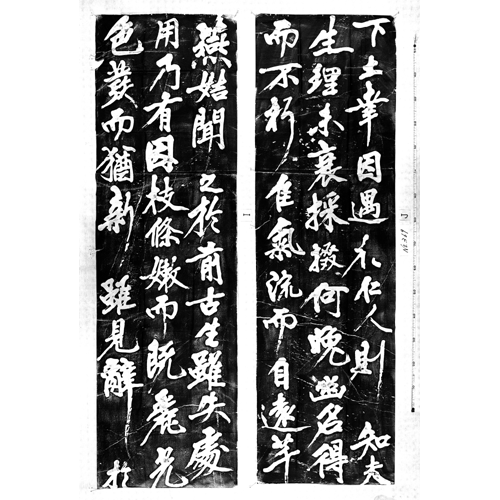 下土幸因遇仁人則知夫
生理未衰採掇何晚幽名得
而不朽佳氣流而自遠羊
燕始聞之於前古生雖失處
用乃有因枝條嫩而既麗光
色發而猶新雖見辭於